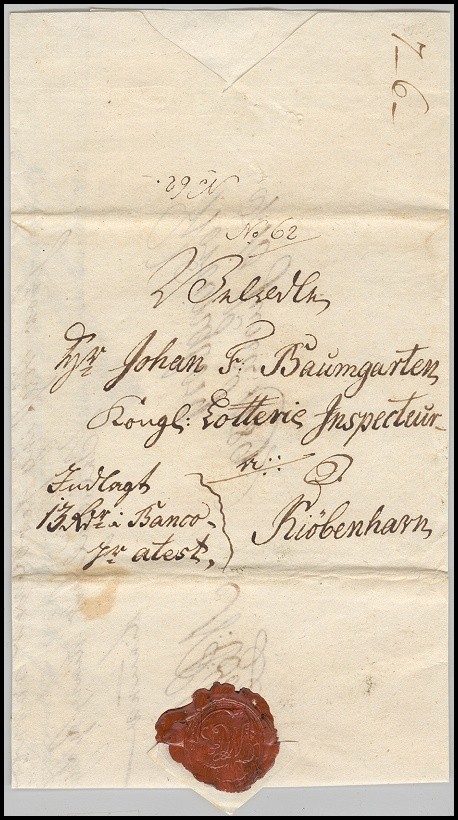 7-6-
No 62.
No 62
Velædle
Hr Johan F: Baumgarten
Kongl: Lotterie Inspecteur
Indlagt
13 Rdr i Banco
pr atest,
à
Kiöbenhavn